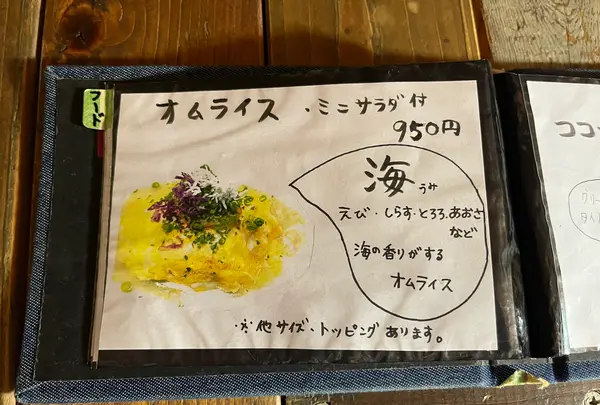 フード
オムライス ・ミニサラダ付
950円
海 うみ
えび・しらす・とろろ、あおさ
など
海の香りがする
オムライス
※他サイズ、トッピングあります。
ココ
グリー